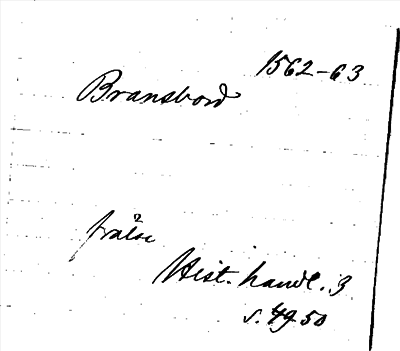 1562-63
Bransbord
frälse
Hist. handl. 3
s. 49-50